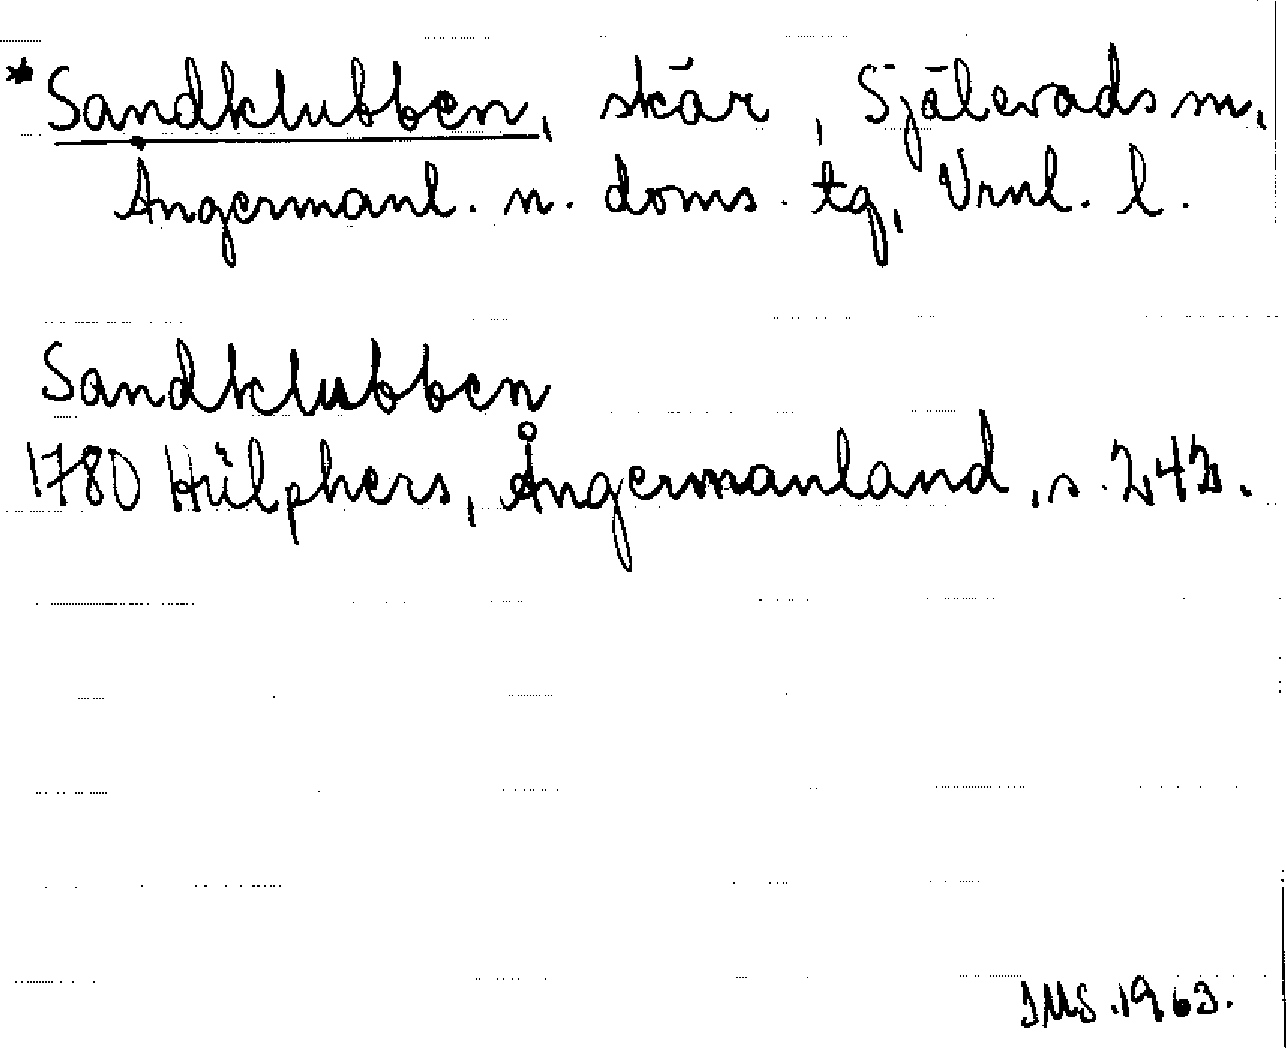 *Sandklubben, skär, Själevads sn,
Ångermanl. n. doms. tg, Vrnl. l.
Sandklubben
1780 Hülphers, Ångermanland, s. 242.
JMS. 1963.